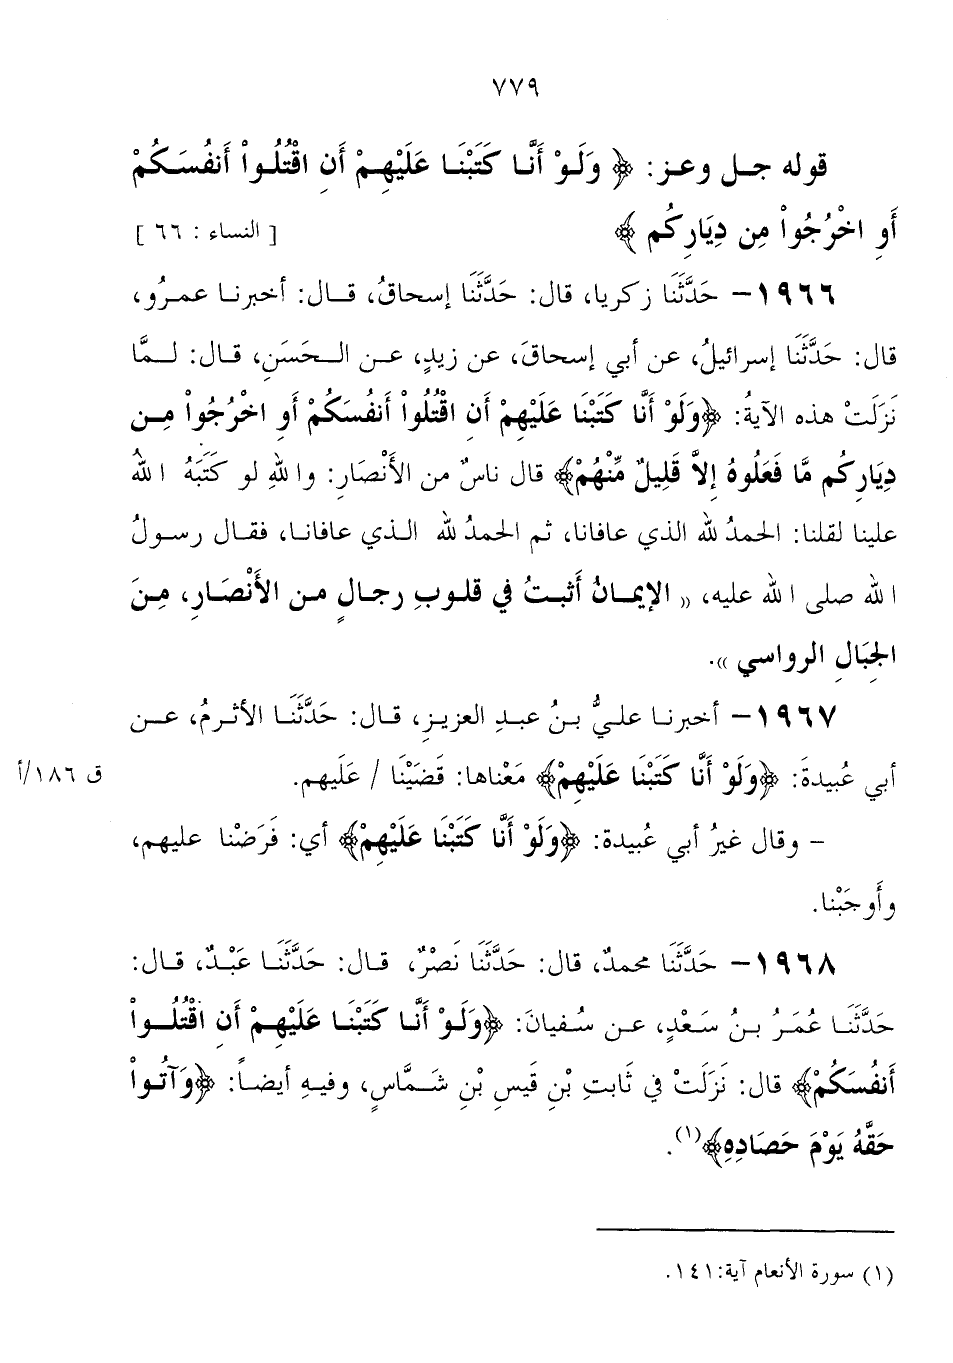 ٧٧٩
قوله جل وعز: ﴿ وَلَوْ أَنَّا كَتَبْنَا عَلَيْهِمْ أَنِ اقْتُلُواْ أَنفُسَكُمْ
أَوِ اخْرُجُواْ مِن دِيَارِكُم ﴾ [ النساء : ٦٦ ]
١٩٦٦– حَدَّثَنَا زكريا، قال: حَدَّثَنَا إسحاقُ، قال: أخبرنا عمرُو،
قال: حَدَّثَنَا إسرائيلُ، عن أبي إسحاقَ، عن زيدٍ، عن الحَسَنِ، قال: لمَّا
نَزَلَتْ هذه الآيةُ: ﴿وَلَوْ أَنَّا كَتَبْنَا عَلَيْهِمْ أَنِ اقْتُلُواْ أَنفُسَكُمْ أَوِ اخْرُجُواْ مِن
دِيَارِكُم مَّا فَعَلُوهُ إِلاَّ قَلِيلٌ مِّنْهُمْ﴾ قال ناسٌ من الأَنْصَارِ: واللهِ لو كَتَبَهُ اللهُ
علينا لقلنا: الحمدُ لله الذي عافانا، ثم الحمدُ لله الذي عافانا، فقال رسولُ
الله صلى الله عليه، « الإيمانُ أثبتُ في قلوبِ رجالٍ من الأَنْصَارِ، مِنَ
الجِبَالِ الرواسي ».
١٩٦٧– أخبرنا عليُّ بنُ عبدِ العزيزِ، قال: حَدَّثَنَا الأثرمُ، عن
أبي عُبيدةَ: ﴿وَلَوْ أَنَّا كَتَبْنَا عَلَيْهِمْ﴾ مَعْناها: قَضَيْنَا / عَلَيهم. ق ١٨٦/أ
– وقال غيرُ أبي عُبيدة: ﴿وَلَوْ أَنَّا كَتَبْنَا عَلَيْهِمْ﴾ أي: فَرَضْنا عليهم،
وأَوجَبْنا.
١٩٦٨– حَدَّثَنَا محمدٌ، قال: حَدَّثَنَا نَصْرٌ، قال: حَدَّثَنَا عَبْدٌ، قال:
حَدَّثَنَا عُمَرُ بنُ سَعْدٍ، عن سُفيانَ: ﴿وَلَوْ أَنَّا كَتَبْنَا عَلَيْهِمْ أَنِ اقْتُلُواْ
أَنفُسَكُمْ﴾ قال: نَزَلَتْ في ثَابتِ بْنِ قَيسِ بْنِ شَمَّاسٍ، وفيهِ أيضاً: ﴿وَآتُواْ
حَقَّهُ يَوْمَ حَصَادِهِ﴾(١).
(١) سورة الأنعام آية:١٤١.